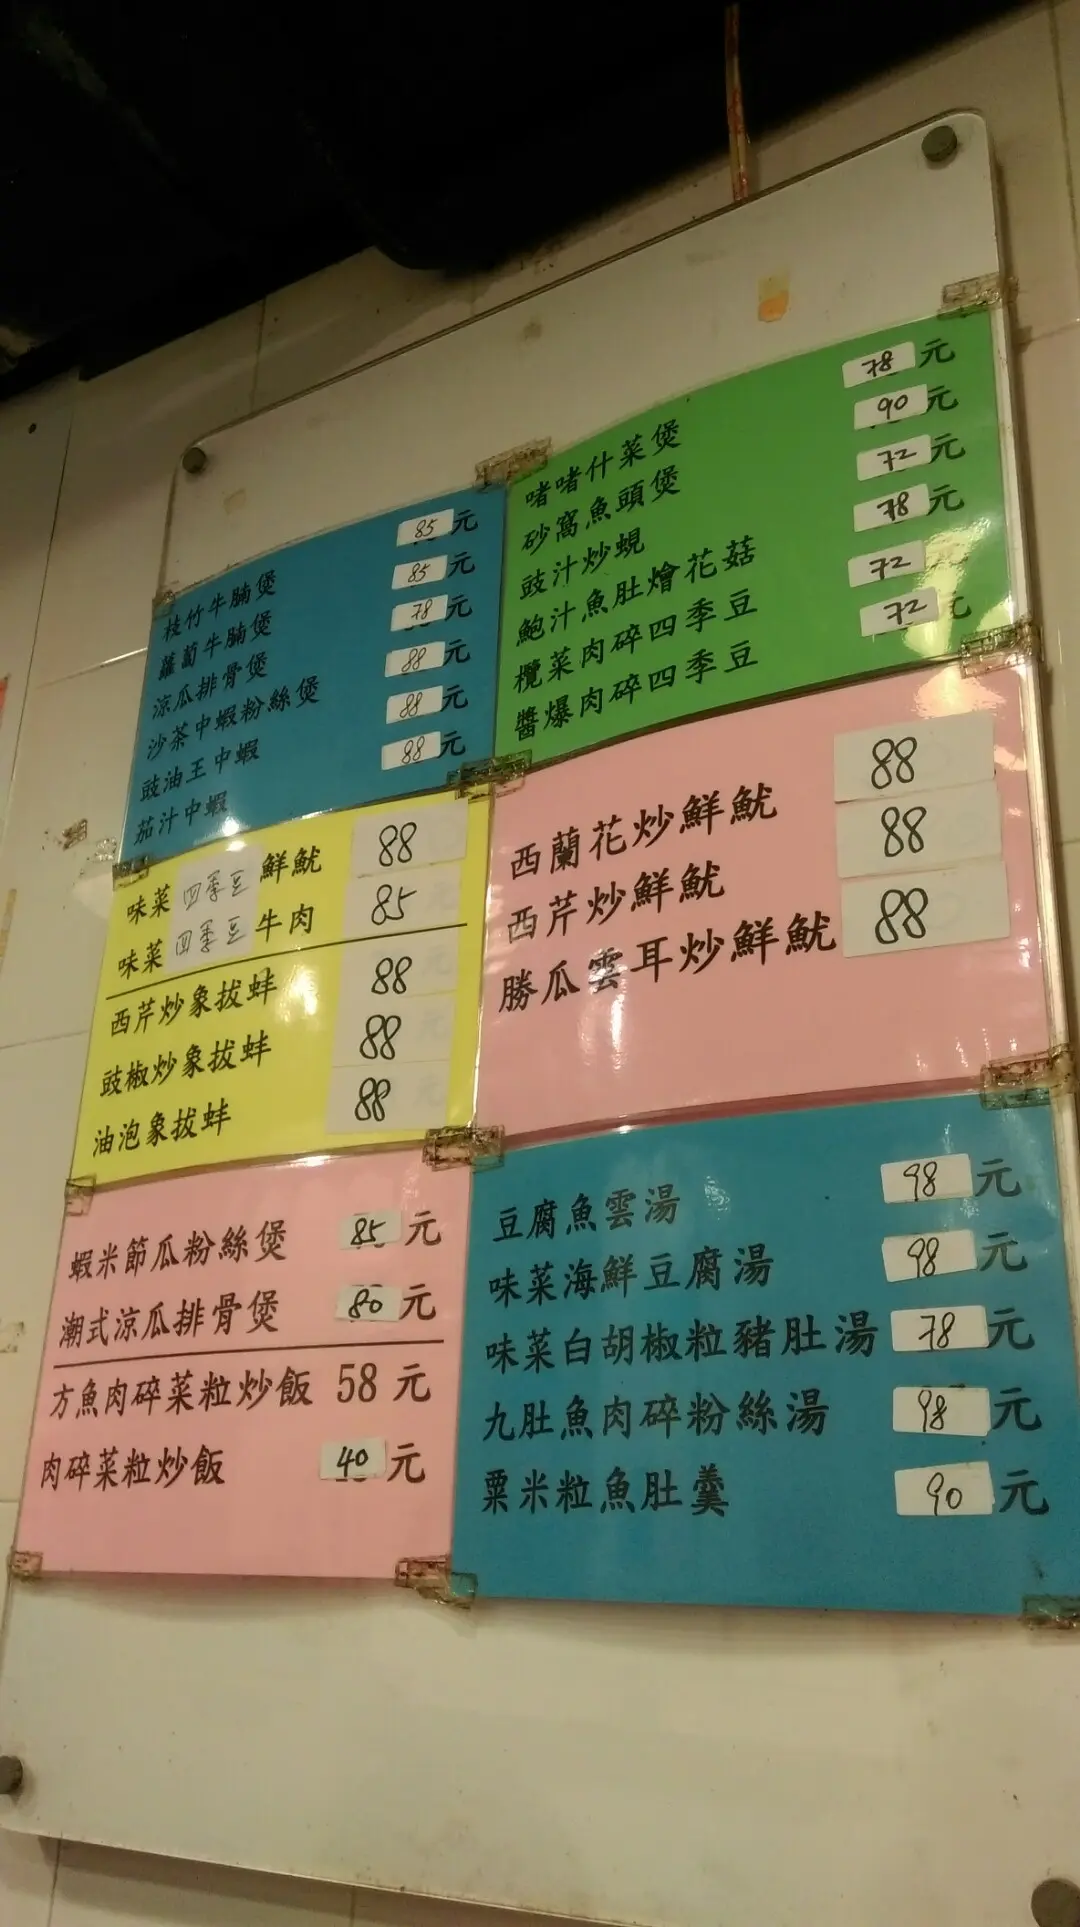 枝竹牛腩煲 85元
蘿蔔牛腩煲 85元
涼瓜排骨煲 78元
沙茶中蝦粉絲煲 88元
豉油王中蝦 88元
茄汁中蝦 88元
啫啫什菜煲 78元
砂窩魚頭煲 90元
豉汁炒蜆 72元
鮑汁魚肚燴花菇 78元
欖菜肉碎四季豆 72元
醬爆肉碎四季豆 72元
味菜四季豆鮮魷 88
味菜四季豆牛肉 85
西芹炒象拔蚌 88
豉椒炒象拔蚌 88
油泡象拔蚌 88
西蘭花炒鮮魷 88
西芹炒鮮魷 88
勝瓜雲耳炒鮮魷 88
蝦米節瓜粉絲煲 85元
潮式涼瓜排骨煲 80元
方魚肉碎菜粒炒飯 58元
肉碎菜粒炒飯 40元
豆腐魚雲湯 98元
味菜海鮮豆腐湯 98元
味菜白胡椒粒豬肚湯 78元
九肚魚肉碎粉絲湯 98元
粟米粒魚肚羹 90元